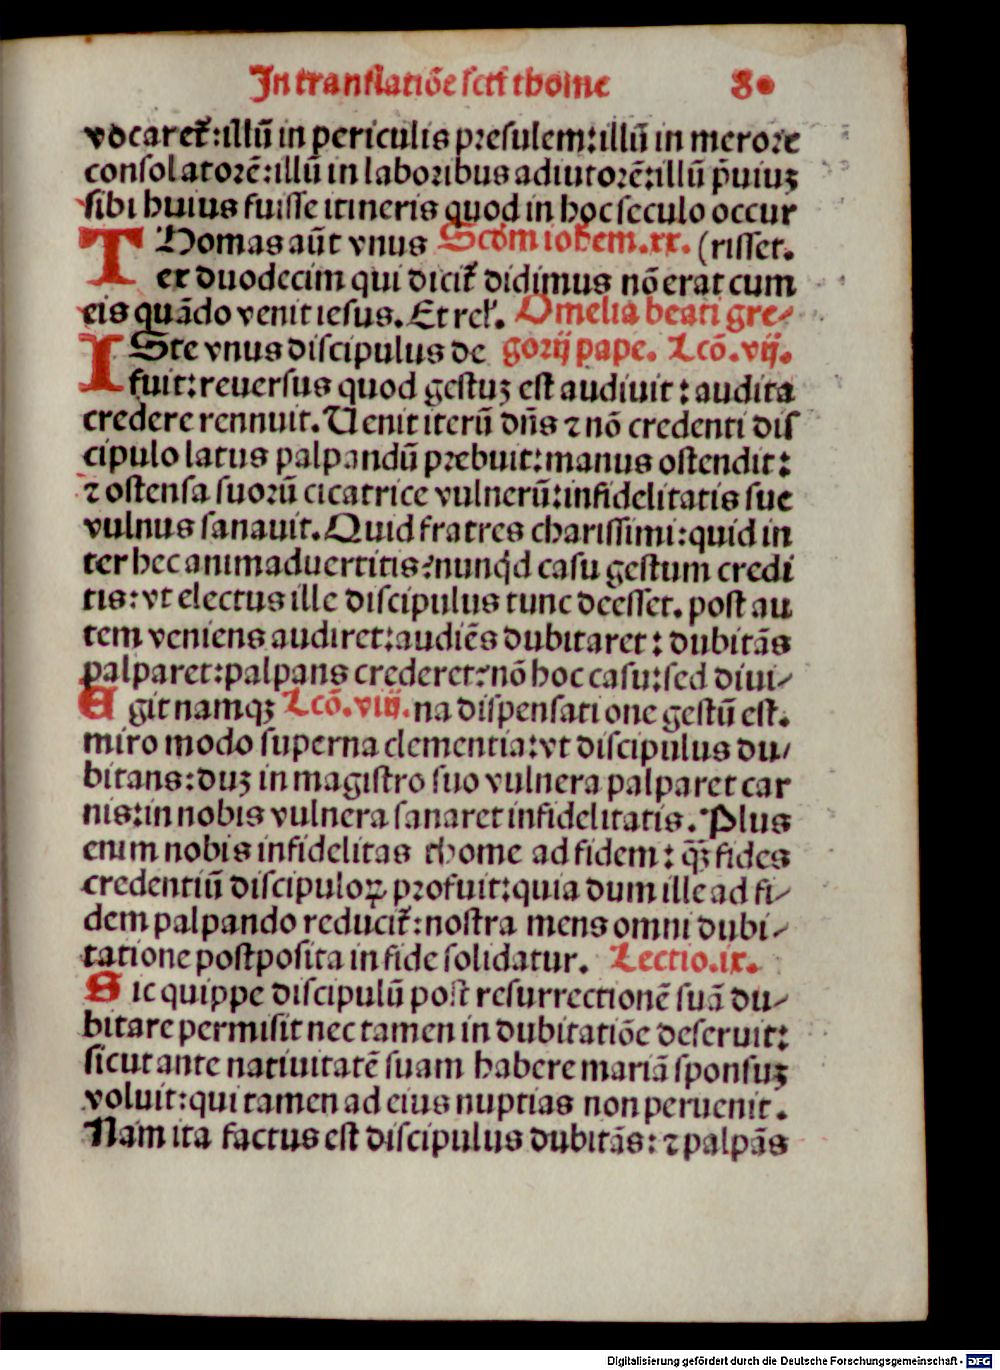 In translatiõe sctĩ thome 8•
vocaret᷑:illũ in periculis presulem:illũ in merore
consolatorẽ:illũ in laboribus adiutorẽ:illũ p̃uiuꝫ
sibi huius fuisse itineris quod in hoc seculo occur
THomas aũt vnus Scđm iohem.xx. (risset.
ex duodecim qui dicit᷑ didimus nõ erat cum
eis quãdo venit iesus. Et rel̕. Omelia beati gre-
ISte vnus discipulus de gorij pape. Lcõ.vij.
fuit:reuersus quod gestuꝫ est audiuit: audita
credere rennuit. Uenit iterũ dñs ⁊ nõ credenti dis
cipulo latus palpandũ prebuit:manus ostendit:
⁊ ostensa suorũ cicatrice vulnerũ:infidelitatis sue
vulnus sanauit. Quid fratres charissimi:quid in
ter hec animaduertitis?nunq̇d casu gestum credi
tis:vt electus ille discipulus tunc deesset. post au
tem veniens audiret:audiẽs dubitaret: dubitãs
palparet:palpans crederet?nõ hoc casu:sed diui-
Egit namqꝫ Lcõ.viij. na dispensatione gestũ est.
miro modo superna clementia:vt discipulus du-
bitans:duꝫ in magistro suo vulnera palparet car
nis:in nobis vulnera sanaret infidelitatis. Plus
enim nobis infidelitas thome ad fidem: q̃ꝫ fides
credentiũ discipuloꝝ profuit:quia dum ille ad fi-
dem palpando reducit᷑:nostra mens omni dubi-
tatione postposita in fide solidatur. Lectio.ix.
Sic quippe discipulũ post resurrectionẽ suã du-
bitare permisit nec tamen in dubitatiõe deseruit:
sicut ante natiuitatẽ suam habere mariã sponsuꝫ
voluit:qui tamen ad eius nuptias non peruenit.
Nam ita factus est discipulus dubitãs: ⁊ palpãs
Digitalisierung gefördert durch die Deutsche Forschungsgemeinschaft - DFG